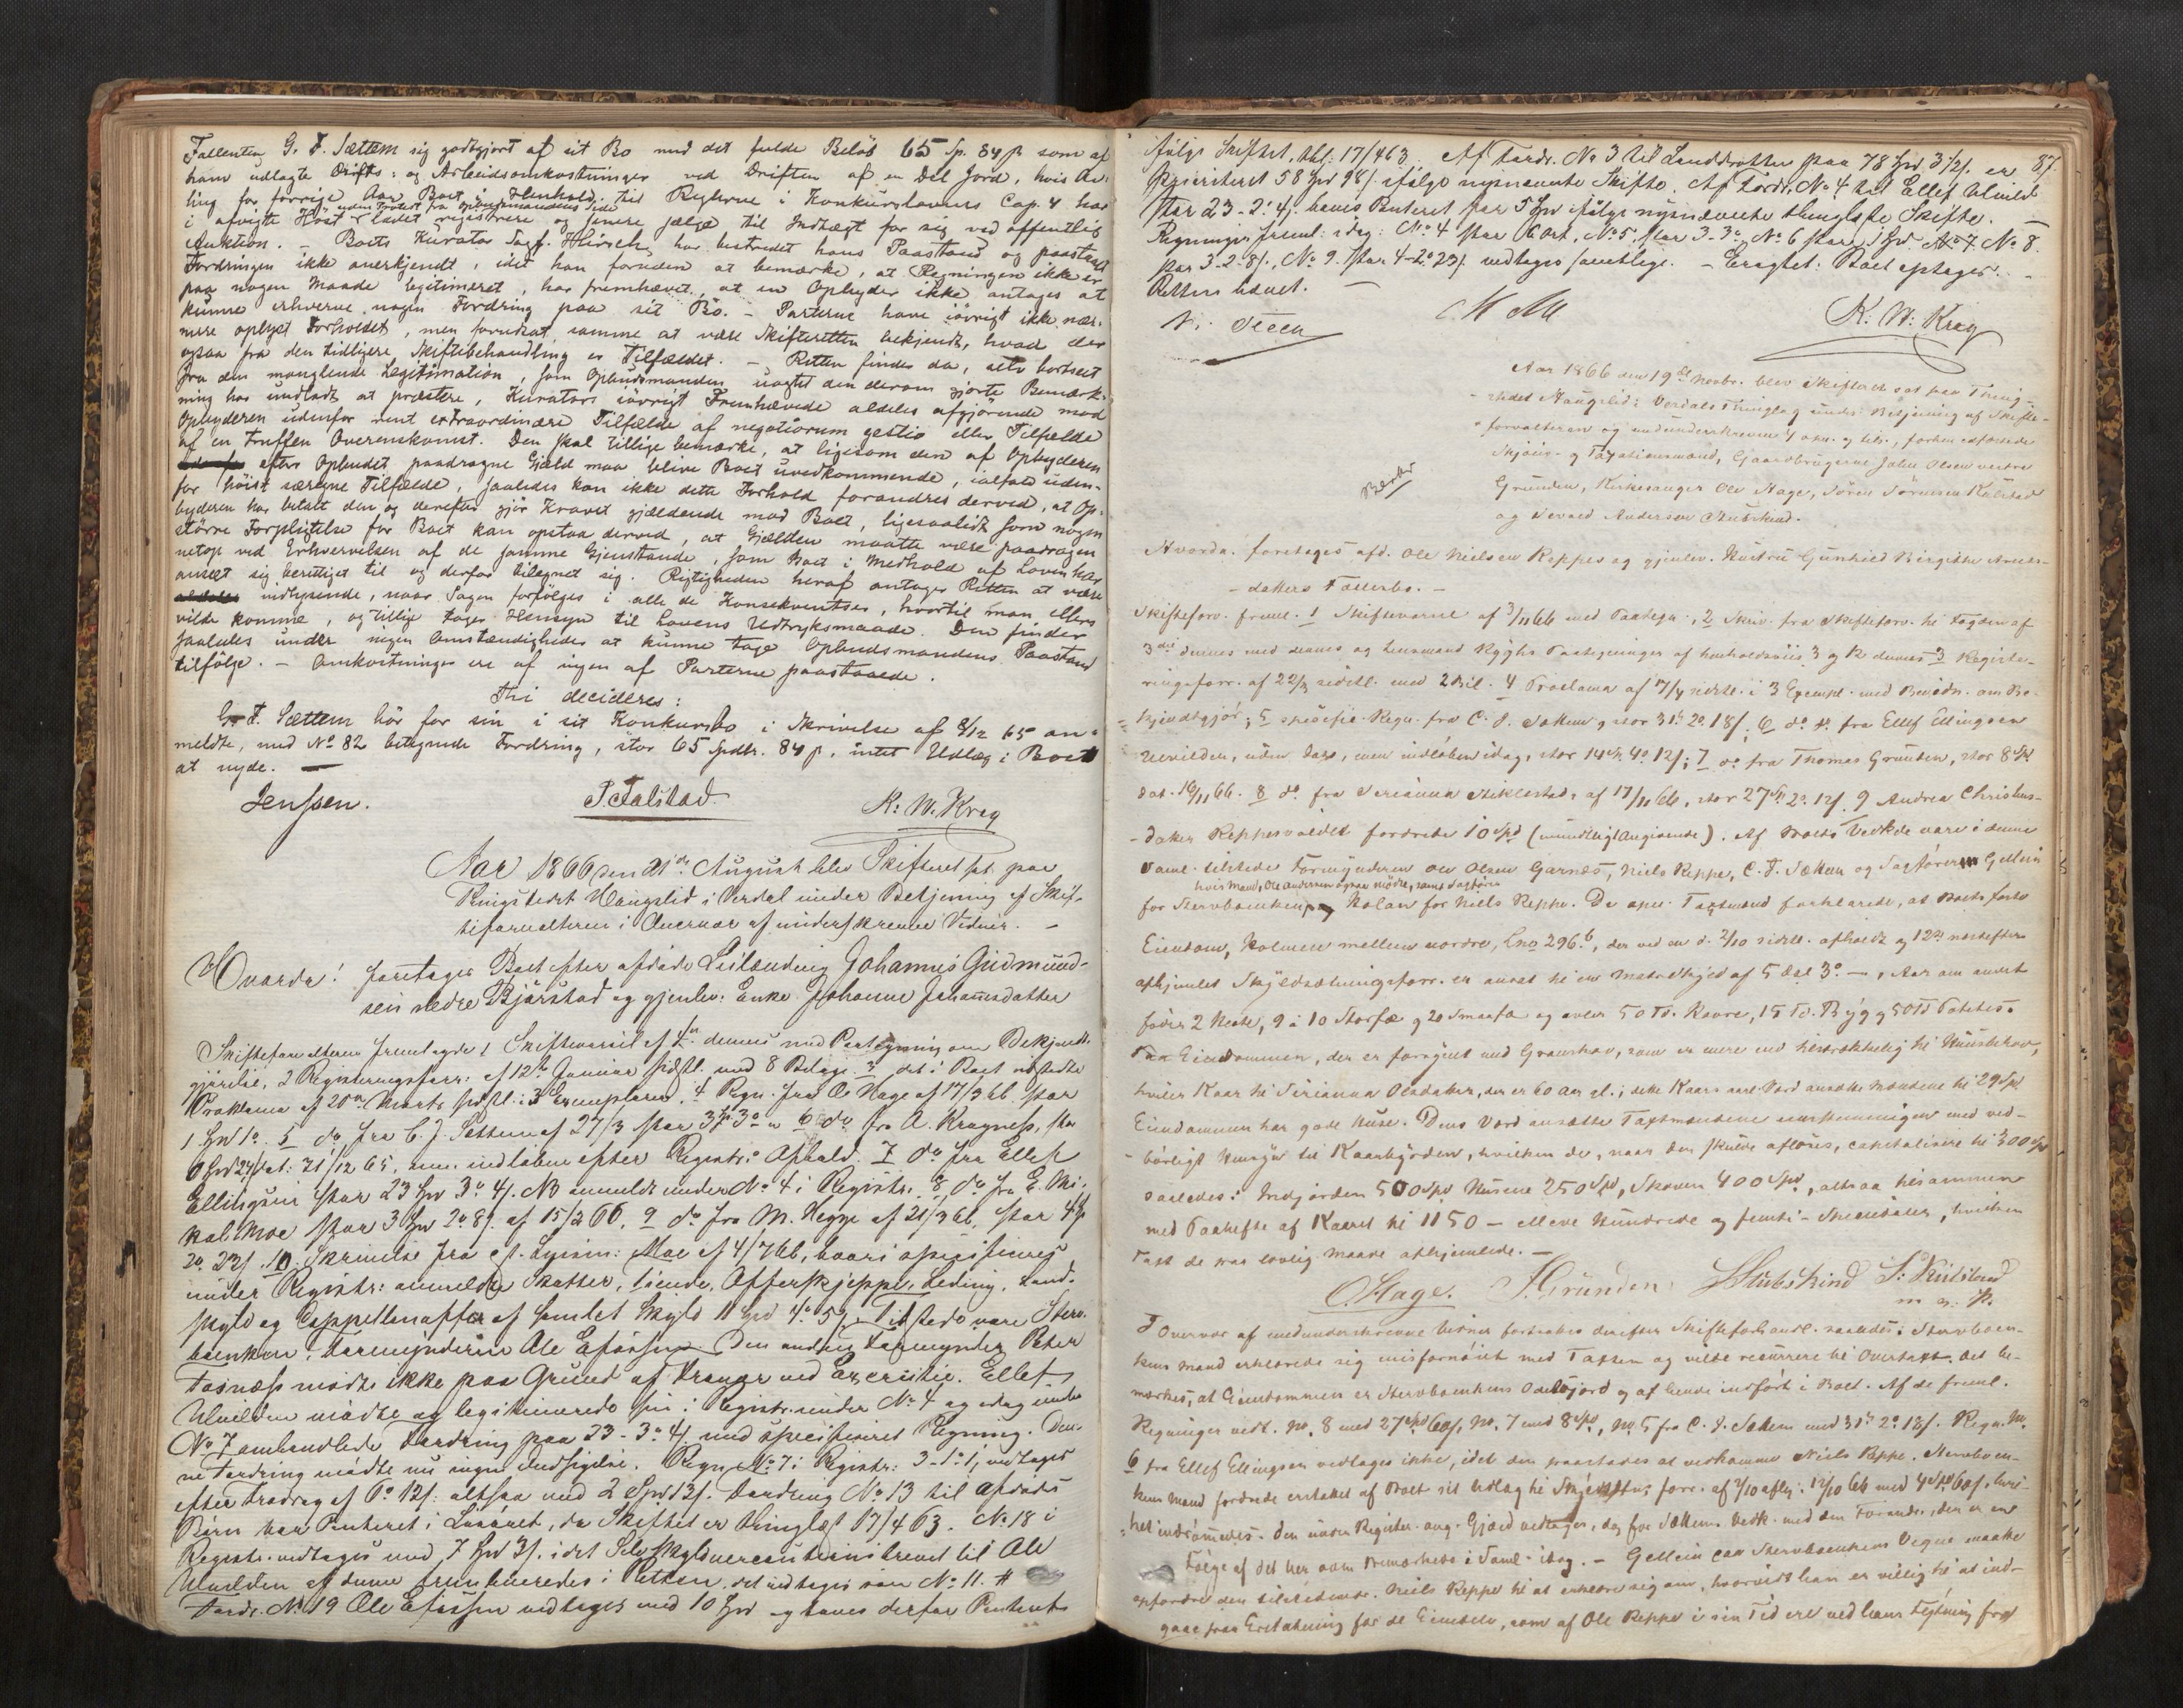 Fallenten G. F. Sættem sig godtgjort af sit Bo med det fulde Beløb 65 Sp. 84 ß som af
ham udlagte Drifts: og Arbeidsomkostninger ved Driften af en Del Jord, hvis Av-
ling for forrige Aar Boet i Henhold til Reglerne i Konkurslovens Cap. 4 har
i afvigte Høst uden Protest fra Opbudsmandens Side ladet registrere og senere sælge til Indtægt for sig ved offentlig
Auktion. – Boets Kurator Sagf. Hirsch har bestridt hans Paastand og paastaaet
Fordringen ikke anerkjendt, idet han foruden at bemærke, at Regningen ikke er
paa nogen Maade legitimeret, har fremhævet, at en Opbyder ikke antages at
kunne erhverve nogen Fordring paa sit Bo. – Parterne have iøvrigt ikke nær-
mere oplyst Forholdet, men forudsat samme at være Skifteretten bekjendt, hvad der
ogsaa fra den tidligere Skiftebehandling er Tilfældet. – Retten finder da, selv bortseet
fra den manglende Legitimation, som Opbudsmanden uagtet den derom gjorte Bemærk-
ning har undladt at præstere, Kurators iøvrigt Fremhævede aldeles afgjørende mod
Opbyderen udenfor rent extraordinære Tilfælde af negotiorum gestio eller Tilfælde
af en truffen Overenskomst. Den skal tillige bemærke, at ligesom den af Opbyderen
efter Opbudet paadragne Gjæld maa blive Boet uvedkommende, ialfald uden-
for høist særegne Tilfælde, saaledes kan ikke dette Forhold forandres derved, at Op-
byderen har betalt den og derefter gjør Kravet gjældende mod Boet, ligesaalidt som nogen
større Forpligtelse for Boet kan opstaa derved, at Gjælden maatte være paadragen
netop ved Erhvervelsen af de samme Gjenstande, som Boet i Medhold af Loven har
anseet sig berettiget til og derfor tilegnet sig. Rigtigheden heraf antager Retten at være
indlysende, naar Sagen forfølges i alle de Konsekventser, hvortil man ellers
vilde komme, og tillige tages Hensyn til Lovens Udtryksmaade. Den finder
saaledes under ingen Omstændigheder at kunne tage Opbudsmandens Paastand
tilfølge. – Omkostninger ere af ingen af Parterne paastaaede.
Thi decideres:
G. F. Sættem bør for sin i sit Konkursbo i Skrivelse af 8/12 65 an-
meldte, med No 82 betegnede Fordring, stor 65 Spdlr. 84 ß, intet Udlæg i Boet
at nyde. –
Jenssen. P. Falstad. K. W. Krog
Aar 1866 den 21de August blev Skifteret sat paa
Thingstedet Haugslid i Verdal under Betjening af Skif-
teforvalteren i Overvær af underskrevne Vidner. –
Hvorda! foretages Boet efter afdøde Leilænding Johannes Gudmund-
sen nedre Bjørstad og gjenlev: Enke Johanne Johannsdatter
Skifteforvalteren fremlagde 1 Skifteovarsel af dennes med Paategning om Bekjendt-
gjørelse, 2 Registreringsforr: af 12te Januar sidstl. med 8 Bilage. 3 det i Boet udstedte
Proklama af 20de Marts sidstl: i 3 Exemplarer. 4 Regn. fra O. Hage af 17/3 66 stor
1 Spd 1o. 5 do fra C. F. Settem af 27/3 stor 3 3o 6 do fra A. Kragness, stor
dat: 31/12 65, indløben efter Registr: Afhold. 7 do fra Ellef
Ellingsen stor 23 Spd 3o 4ß. NB anmeldt under No 4 i Registr. 8 do fra E. Mi-
kal Moe stor 3 Spd 2o 8ß. af 15/2 66, 9 do fra M. Hegge af 21/3 66, stor 4
2o 23ß. 10. Skrivelse fra Moe af 4/7 66, hvori specificeres
under Registr: anmeldte Skatter, Tiende, Offerskjeppe, Leding, Land-
skyld og Cappellanofter af samlet Skyld 11 Spd 4o 5ß. Tilstede vare Sterv-
boenken, Formynderne Ole Den anden Formynder Peter
Tosnæss mødte ikke paa Grund af Trange ved Exercitie. Ellef
Ulvilden mødte og legitimerede sin i Registr. under No 4 og idag under
No 7 omhandlede Fordring paa 23 - 3o 4ß med specificeret Regning. Den-
ne Fordring mødte nu ingen Indsigelse. Regn. No 7 i Registr: 3 - 1o 1ß vedtages
efter Fradrag af 12ß: altsaa med 2 Spd 13ß. Fordring No 13 til Afdødes
Børn har Panteret i Løsøret, da Skiftet er thinglæst 17/4 63. No 18 i
Registr. vedtages med 7 Spd 3ß. idet til Ole
Ulvilden af denne i Retten. det vedtages som No 11. #
Fordr. No 19 Ole vedtages med 10 Spd og haves derfor Panteret
87.
ifølge Skiftet, thl: 17/4 63. Af Fordr. No 3 til Landdrotten paa 78 Spd 3½ß. er
prioriteret 58 Spd 98ß. ifølge nysnævnte Skifte. Af Fordr. No 4 til Ellef Ulvild
stor 23 - 2o 4ß. haves Panteret for 5 Spd ifølge nysnævnte thinglæste Skifte. –
Regninger freml: idag: No 4 stor 6 Ort, No 5, stor 3 - 3o, No 6 stor 1 Spd No 7. No 8
stor 3 - 2 - 8ß., No 9. stor 4 - 2o 23ß. vedtages samtlige. – Eragtet: Boet optages. –
Retten hævet. –
N. Steen K. W. Krog
Aar 1866 den 19de Novbr. blev Skifteret sat paa Thing-
stedet Haugslid i Verdals Thinglag under Betjening af Skifte-
forvalteren og medunderskrevne 4 opn. og tils., forhen edfæstede
Skjøns- og Taxationsmænd, Gaardbrugerne John Olsen vestre
Grunden, Kirkesanger Ole Hage, Søren Sørensen Kulstad
og Sevald Andersen Stubskind.
Hvorda! foretages afd. Ole Nielsen Reppes og gjenlev. Hustru Gunhild Birgitte Anders-
-datters Fællesbo. –
Skifteforv. freml. 1 Skiftevarsel af 3/11 66 med Paategn., 2 Skriv. fra Skifteforv. til Fogden af
3die dennes med dennes og Lensmand Ryghs Paategninger af henholdsviis 3 og 12 dennes 3 Registe-
ringsforr. af 22/3 sidstl. med 2 Bil. 4 Proclama af 7/4 sidstl. i 3 Exempl. med Bevidn. om Be-
kjendtgjør.; 5 specific. Regn. fra C. F. Sættem, stor 31 2o 18ß; 6 do do fra Ellef Ellingsen
Ulvilden, uden Dato, men indløben idag, stor 14 4o 12ß; 7 do fra Thomas Grunden, stor 8 Spd
dat. 16/11 66. 8 do fra Serianna Stiklestad, af 17/11 66, stor 27 2o 12ß. 9 Andrea Christens-
datter Reppesvaldet fordrede 10 Spd (mundtligt Angivende). Af Boets Vedk.de vare i denne
Saml. tilstede Formynderen Ole Olsen Garnes, Niels Reppe, C. F. Sættem og Sagføreren Gellein
for Stervboenken, hvis Mand, Ole Andersen ogsaa mødte, samt Sagfører Kolaas for Niels Reppe. De opn. Taxtmænd forklarede, at Boets faste
Eiendom, Kolmen mellem nordre, Lno 296.b, der ved en d. 2/10 sidstl. afholdt og 12te næstefter
afhjemlet Skyldsætningsforr. er ansat til en Matrikskyld af 5 dal 3o –, Aar om andet
føder 2 Heste, 9 à 10 Storfæ og 20 Smaafæ og avler 50 Td. Havre, 15 Td. Byg og 50 Td Poteter.
Paa Eiendommen, der er forsynet med Granskov, som er mere end tilstrækkelig til Huusbehov,
hviler Kaar til Serianna Olsdatter, der er 60 Aar gl.; dette Kaars aarl. Værd ansatte Mændene til 29 Spd.
Eiendommen har gode Huse. Dens Værd ansatte Taxtmændene eenstemmigen med ved-
børligt Hensyn til Kaarbyrden, hvilken de, naar den skulde afløses, capitaliserede til 300 Spd
saaledes: Indjorden 500 Spd Husene 250 Spd, Skoven 400 Spd, altsaa tilsammen
med Paahefte af Kaaret til 1150 – elleve Hundrede og femti – Speciedaler, hvilken
Taxt de paa lovlig Maade afhjemlede. –
O. Hage. J. Grunden. S. Stubskind S. Kulstad
m. p. P.
I Overvær af medunderskrevne Vidner fortsattes derefter Skifteforhandl. saaledes: Stervboen-
kens Mand erklærede sig misfornøiet med Taxten og vilde recurrere til Overtaxt. Det be-
mærkes, at Eiendommen er Stervboenkens Odelsjord og af hende indført i Boet. Af de freml.
Regninger vedt. No. 8 med 27 Spd 60ß, No. 7 med 8 Spd, No 5 fra C. F. Sættem med 31 2o 18ß. Regn. No.
6 fra Ellef Ellingsen vedtages ikke, idet den paastaaes at vedkomme Niels Reppe. Stervboen-
kens Mand fordrede erstattet af Boet sit Udlæg til Skyldsætn. forr. af 2/10 afhj: 12/10 66 med 4 Spd 60ß, hvil-
ket indrømmes. Den under Register. ang. Gjæld vedtages, dog for Sættems Vedk. med den Forandr., der er en
Følge af det her som bemærkede i Saml. idag. – Gellein paa Stervboenkens Vegne maatte
opfordre den tilstedevær. Niels Reppe til at erklære sig om, hvorvidt han er villig til at ind-
gaae paa Erstatning for de Eiendele, som af Ole Reppe i sin Tid ere ved hans Flytning fra